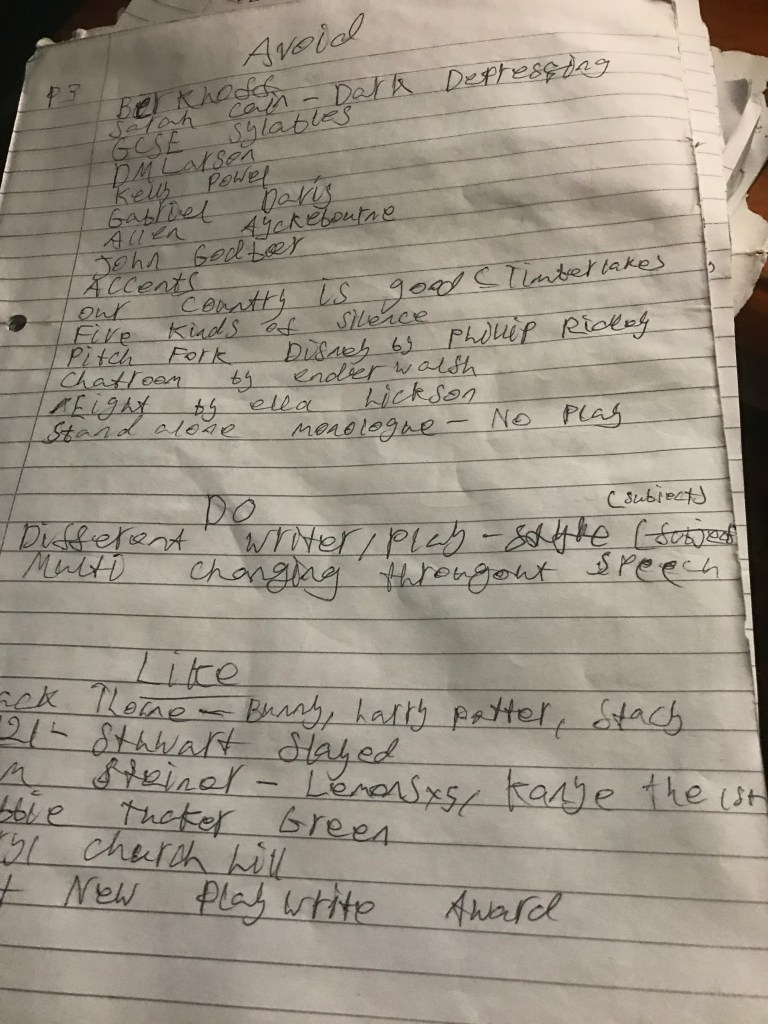 Avoid
P3
Berkhoff
Sarah Cain - Dark Depressing
GCSE Sylables
DM Larsen
Kelly Powel
Gabriel Davis
Allen Ayckebourne
John Godber
Accents
our country is good (Timberlakes
Five Kinds of Silence
Pitch Fork Disney by Phillip Ridley
Chatroom by ender walsh
Eight by ella hickson
Stand alone monologue - No Play
DO
(subject)
Different writer/play - style (subject
Multi changing througout speech
Like
ack Thorne - Bunny, harry potter, Stacy
21- Sthwart Slayed
m Steiner - Lemonsx5, kanye the 1st
bbie Tucker Green
ryl church hill
t New Playwrite Award